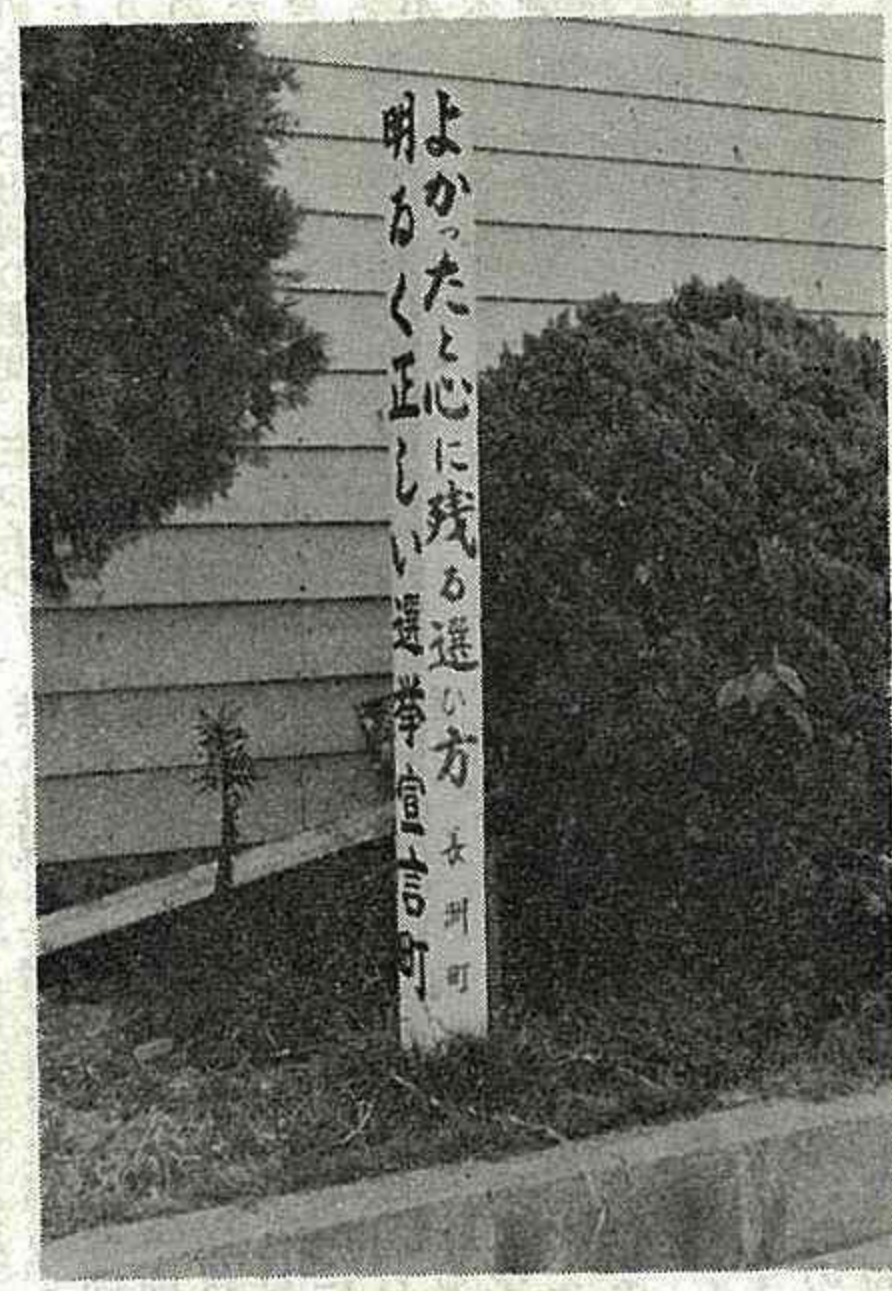 よかったと心に残る選び方 長洲町
明るく正しい選挙宣言町